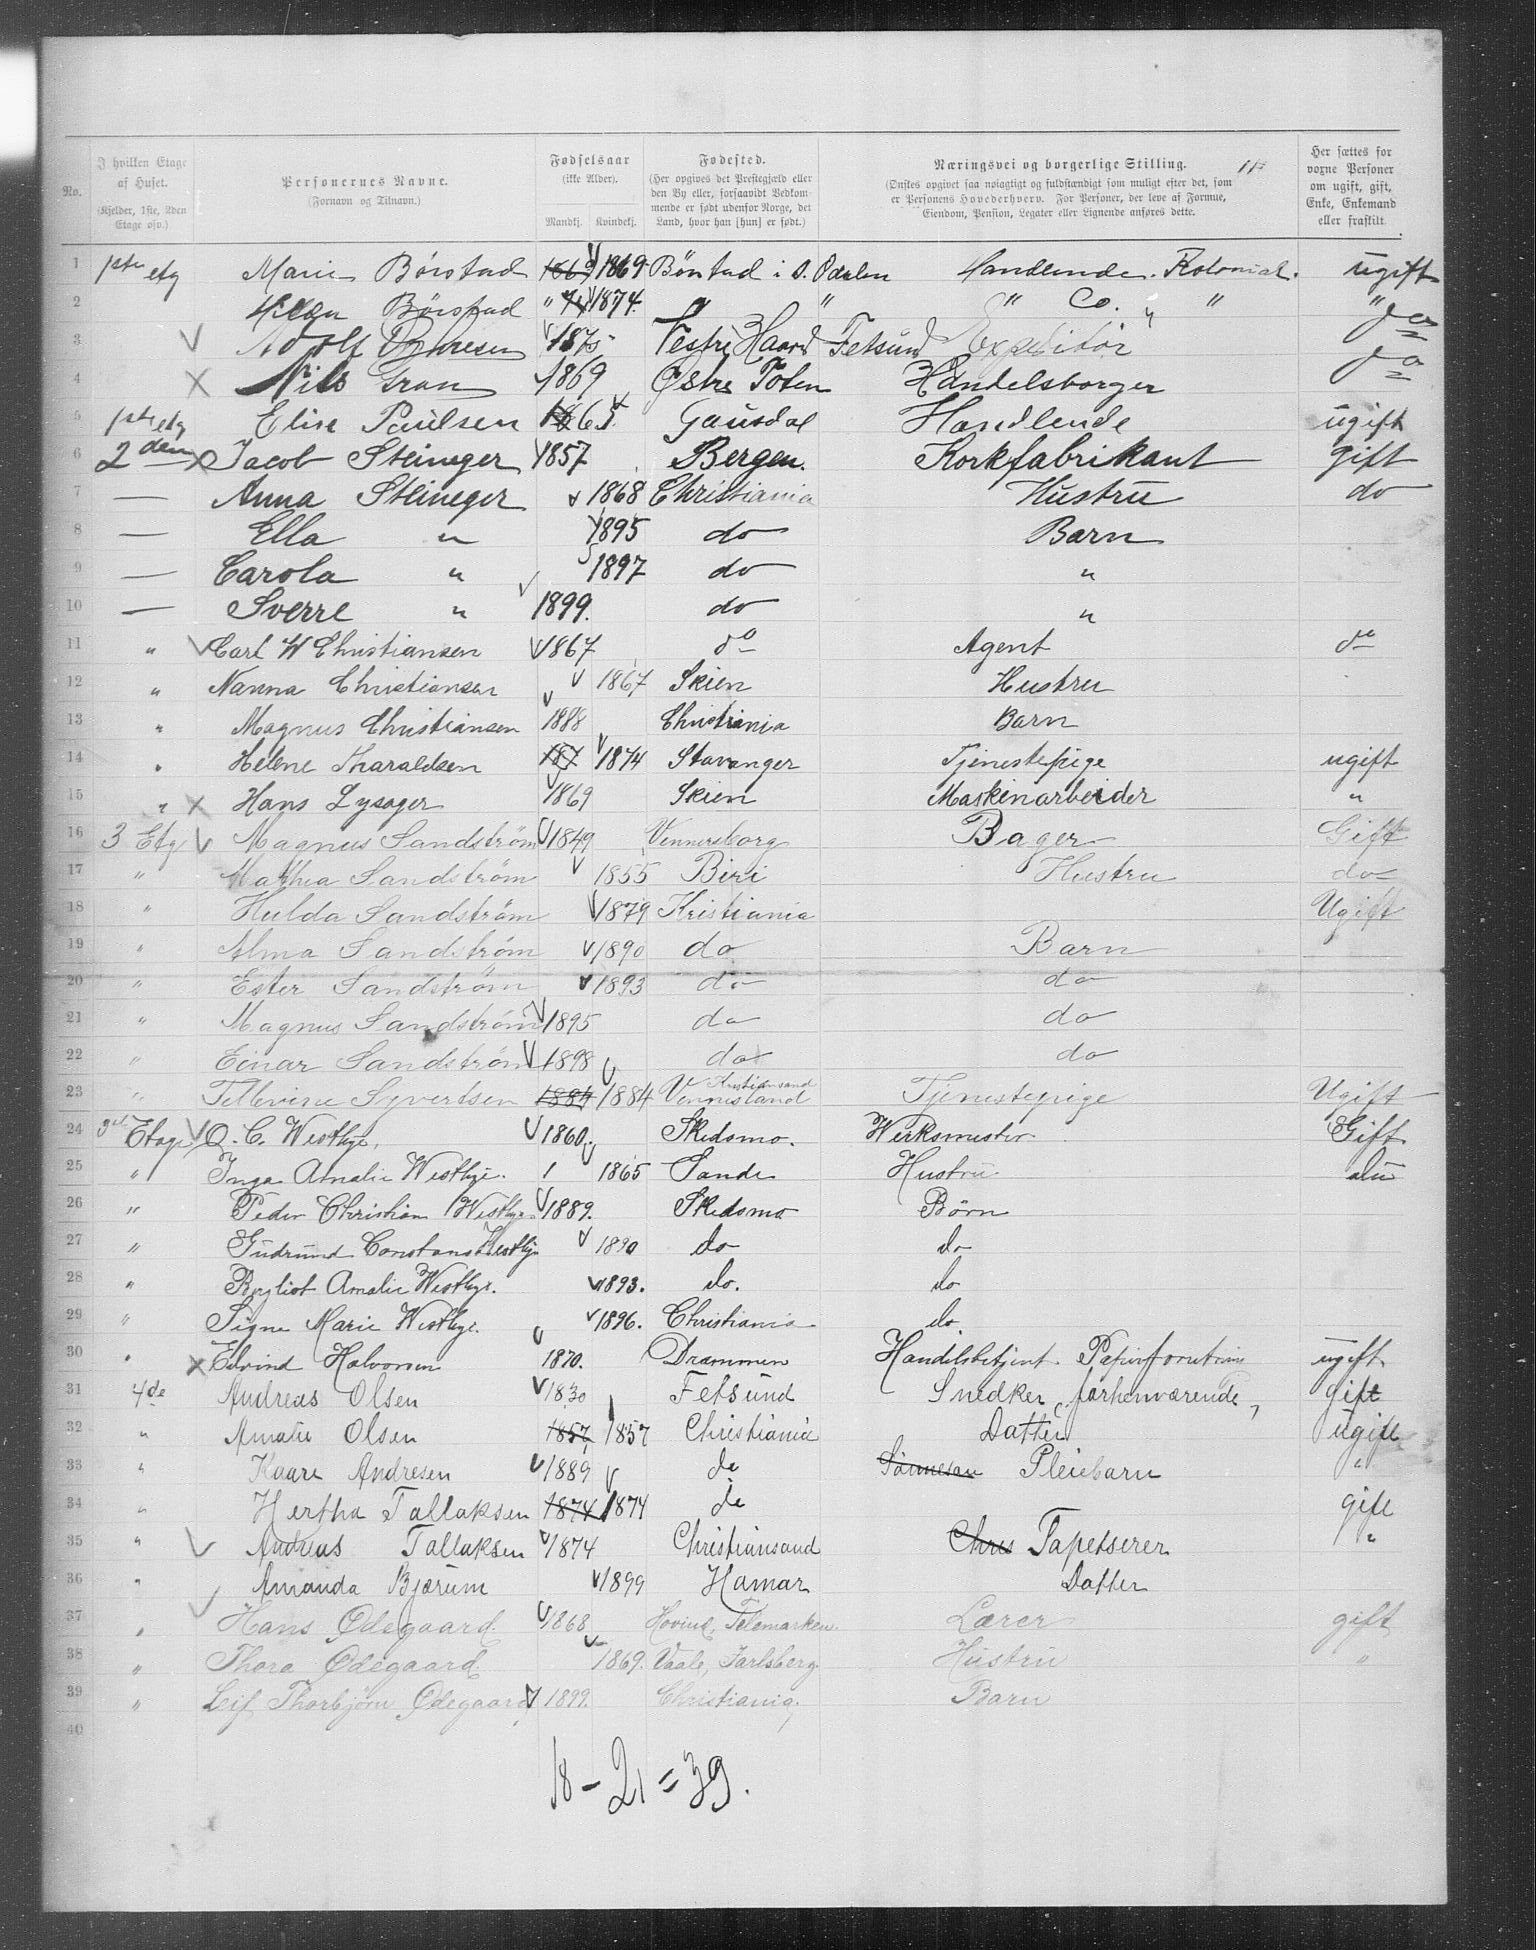 No. I hvilken Etage af Huset. (Kjelder, 1ste, 2den Etage osv.) Personernes Navne. (Fornavn og Tilnavn.) Fødselsaar (ikke Alder). Mandkj. Kvindekj. Fødested. (Her opgives det Prestegjæld eller den By eller, forsaavidt Vedkommende er født udenfor Norge, det Land, hvor han [hun] er født.) Næringsvei og borgerlige Stilling. (Ønskes opgivet saa nøiagtigt og fuldstændigt som muligt efter det, som er Personens Hovederhverv. For Personer, der leve af Formue, Eiendom, Pension, Legater eller Lignende anføres dette. Her sættes for voxne Personer om ugift, gift, Enke, Enkemand eller fraskilt.
1 1ste etg Marie Börstad 1869 1869 Bönstad i S. Odalen Handlende Kolonial. ugift
2 Börstad " 74 1874 " " " Co. " " "
3 Adolf 1875 Vestre Haard Fetsund Expeditør do
4 Nils Gran 1869 Østre Toten Handelsborger do
5 1ste etg Elise Paulsen 1865 Gausdal Handlende ugift
6 2den Jacob Steineger 1857 Bergen. Korkfabrikant gift
7 — Anna Steineger 1868 Christiania Hustru do
8 — Ella " 1895 do Barn
9 — Carola " 1897 do "
10 — Sverre " 1899. do "
11 " Carl W Christiansen 1867 do Agent do
12 " Nanna Christiansen 1867 Skien Hustru
13 " Magnus Christiansen 1888 Christiania Barn
14 " Helene Tharaldsen 187 1874 Stavanger Tjenestepige ugift
15 " Hans Lysager 1869 Skien Maskinarbeider "
16 3 Etg Magnus Sandström 1849 Vennersborg Bager Gift
17 " Mathea Sandström 1855 Biri Hustru do
18 " Hulda Sandström 1879 Kristiania Ugift
19 " Alma Sandström 1890 do Barn
20 " Ester Sandström 1893 do do
21 " Magnus Sandström 1895 do do
22 " Einar Sandström 1898 do do
23 " Tellevine Syvertsen 1884 1884 Vennesland Kristiansand Tjenestepige Ugift
24 3die Etage O. C. Westbye. 1860. Skedsmo. Werksmester Gift
25 " Inga Amalie Westbye. 1 1865 Sande Hustru
26 " Peder Christian Westbye 1889. Skedsmo Børn
27 " Gudrund Constanse Westbye 1890 do do
28 " Amalie Westbye. 1893. do. do
29 " Signe Marie Westbye. 1896. Christiania do
30 " Eivind Halvorsen 1870. Drammen Handelsbetjent. ugift
31 4de Andreas Olsen 1830 Fetsund Snedker, forhenværende, gift
32 " Amalie Olsen 1857 1857 Christiania Datter ugift
33 " Kaare Andresen 1889 do Sønnesøn Pleiebarn "
34 " Hertha Tallaksen 1874 1874 do gift
35 " Andreas Tallaksen 1874 Christiansand Chris Tapetserer "
36 " Amanda Bjærum 1899 Hamar Datter
37 " Hans Ødegaard. 1868 Hovind, Telemarken. Lærer gift
38 " Thora Ødegaard. 1869. Vaale, Jarlsberg. Hustru "
39 " Leif Thorbjørn Ødegaard 1899. Christiania, Barn
40
18 - 21 = 39.